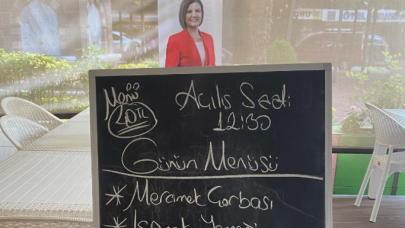 Menü
Açılış Saati
12:30
Günün Menüsü
* Meramet Çorbası